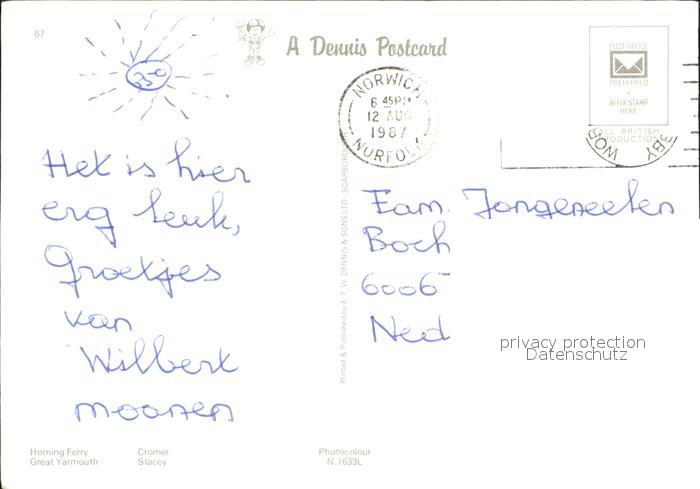 67
A Dennis Postcard
POST OFFICE
PREFERRED
AFFIX STAMP
HERE
ALL BRITISH
PRODUCTION
NORWICH
6 45PM
12 AUG
1987
NORFOLK
35°
Het is hier
erg leuk,
Groetjes
van
Wilbert
moonen
Fam. Jongeneelen
Boch
6006
Ned
Printed & Published by E. T. W. DENNIS & SONS LTD. SCARBORO
privacy protection
Datenschutz
Horning Ferry
Great Yarmouth
Cromer
Stacey
Photocolour
N.1633L